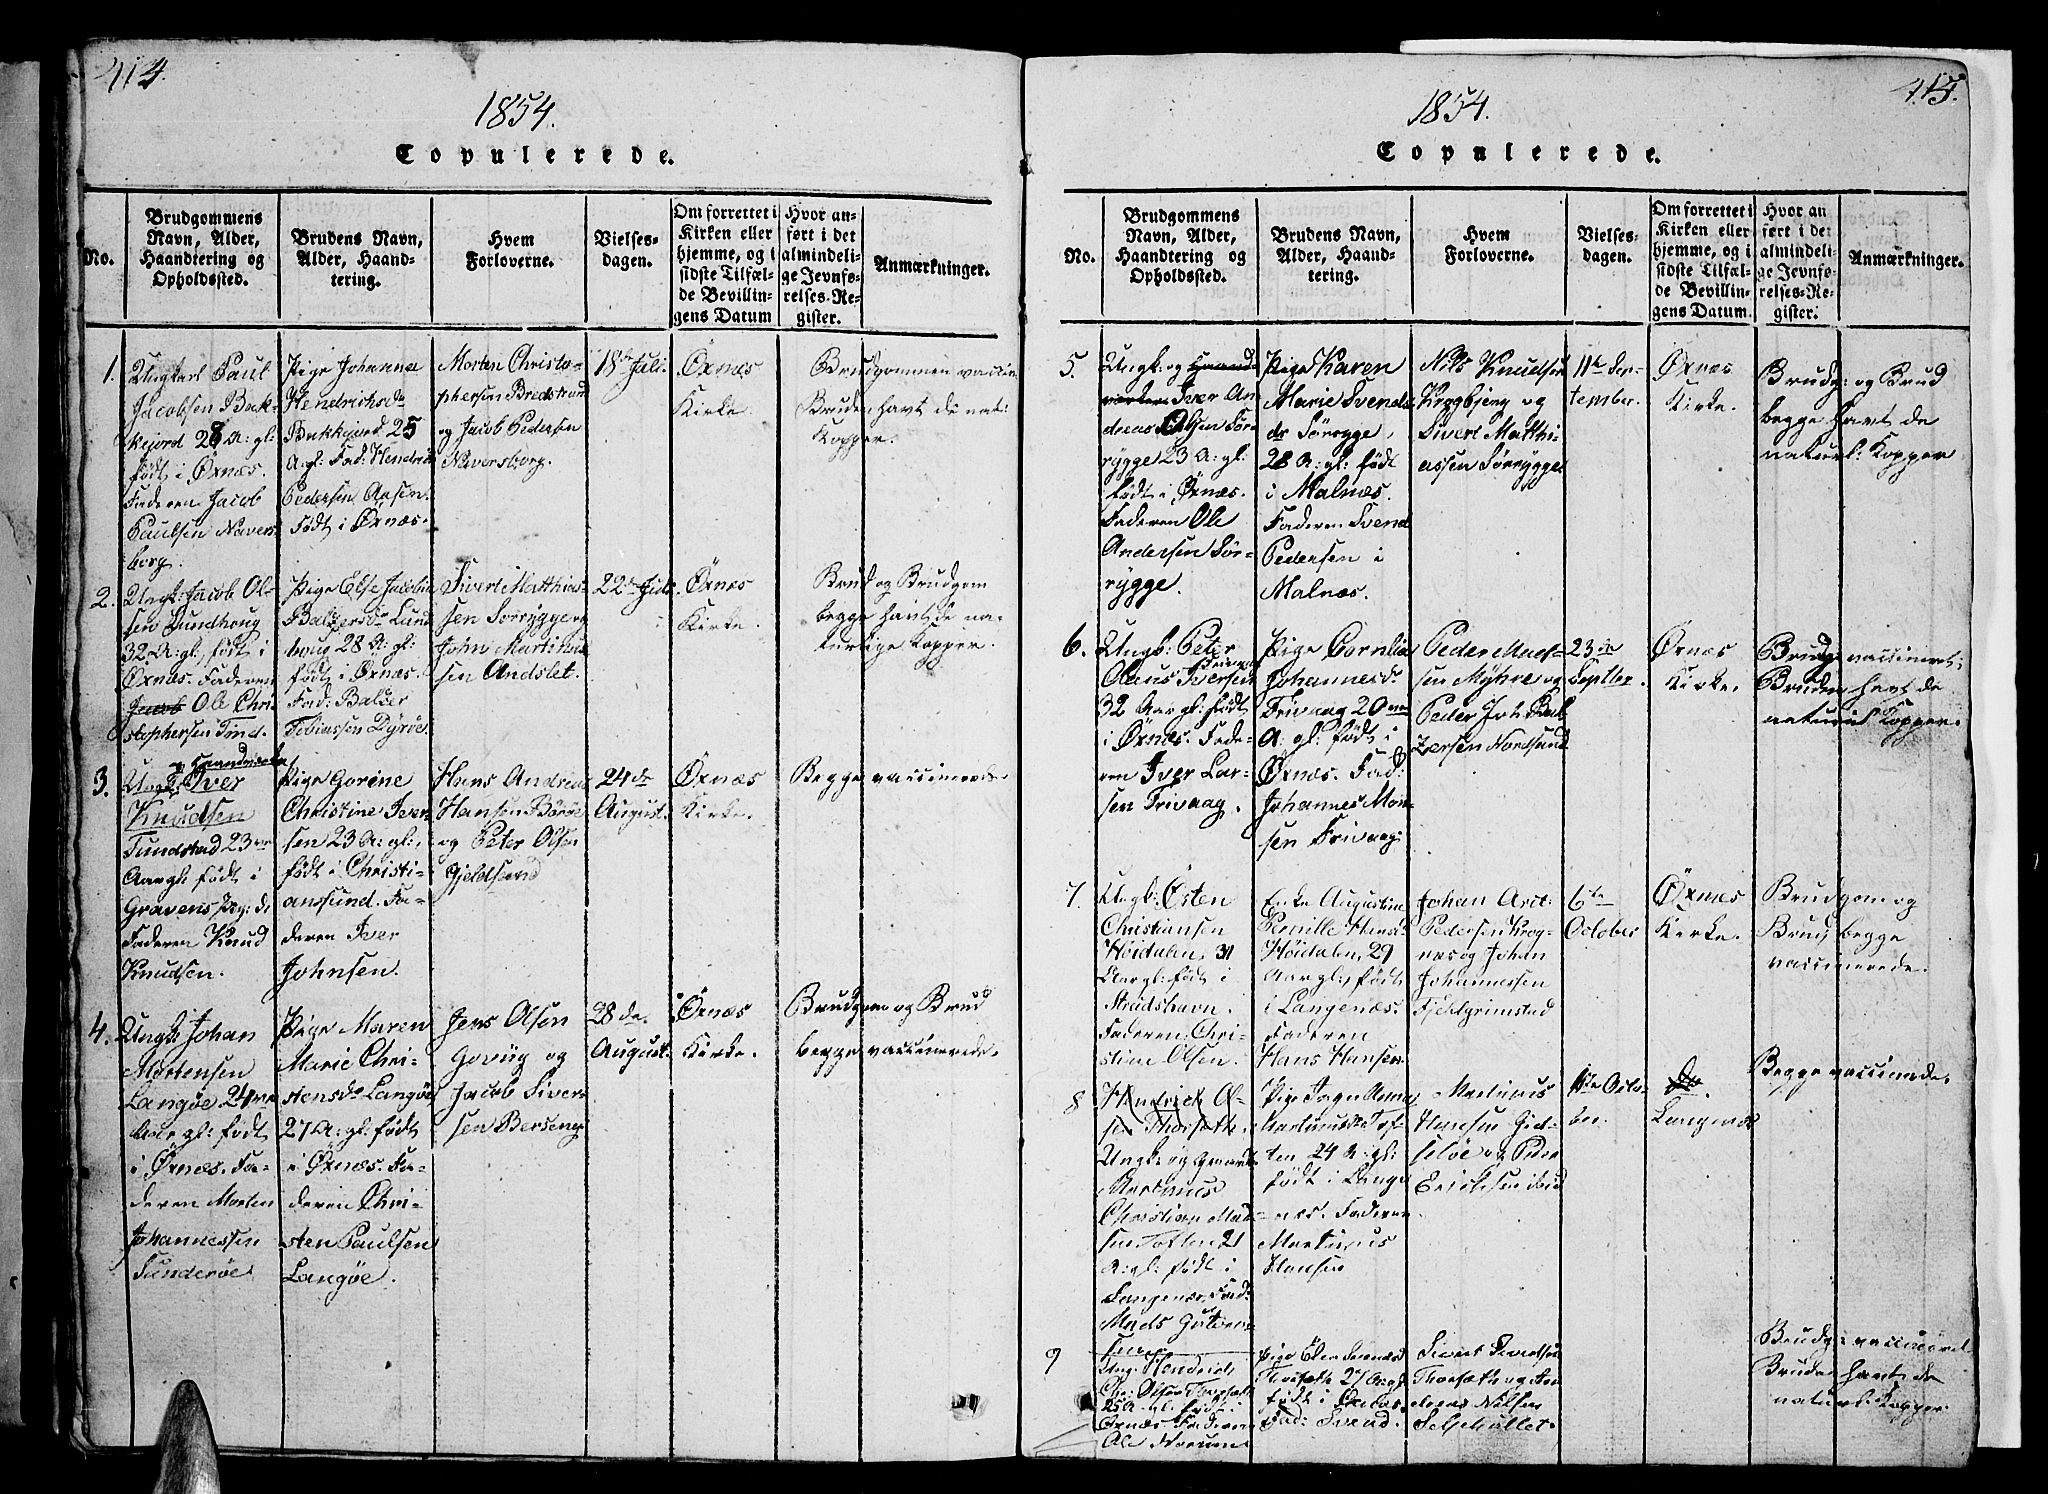 414.
1854.
Copulerede.
No.
Brudgommens
Navn, Alder,
Haandtering og
Opholdssted.
Brudens Navn,
Alder, Haand-
tering.
Hvem
Forloverne.
Vielses-
dagen.
Om forrettet i
Kirken eller
hjemme, og i
sidste Tilfæl-
de Bevillin-
gens Datum
Hvor an-
ført i det
almindeli-
ge Jevnfø-
relses-Re-
gister.
Anmærkninger.
1.
Ungkarl Paul
Jacobsen Bak-
kejord 28 A: gl:
født i Øxnæs.
Faderen Jacob
Paulsen Navers-
borg.
Pige Johanna
Hendrichsdr
Bakkejord 25
A gl: Fad: Hendrik
Pedersen Aasen.
Født i Øxnæs.
Morten Christo-
phersen Bredstrand
og Jacob Pedersen
Naversborg.
18de Juli.
Øxnæs
Kirke.
Brudgommen vaccin.
Bruden havt de nat:
Kopper.
2.
Ungk: Jacob Ol-
sen Lundhoug
32 A: gl., født i
Øxnæs. Faderen
Jacob Ole Chri-
stophersen Tind.
Pige Else Jacobine
Balzersdr Lund
houg 28 A: gl:
født i Øxnæs.
Fad: Balser
Tobiassen Dyrøe.
Sivert Matthias-
sen Sørrygge og
John Martinus
sen Andslet.
22de Juli.
Øxnæs
Kirke.
Brud og Brudgom
begge havt de na-
turlige Kopper.
3.
og Haandværker
Ungk: Iver
Knudsen
Tundstad 23
Aar gl: født i
Gravens Prg: di
Faderen Knud
Knudsen.
Pige Gorine
Christine Iver
sen 23 A: gl:,
født i Christi-
anssund. Fa-
deren Iver
Johnsen.
Hans Andreas
Hansen Børøe
og Peter Olsen
Gjeldsund
24de
August.
Øxnæs
Kirke.
Begge vaccinerede
4.
Ungk: Johan
Mortensen
Langøe 24
Aar gl: født
i Øxnæs. Fa-
deren Morten
Johannessen
Tinderøe
Pige Maren
Marie Chri-
stensdr Langøe
27 A: gl: født
i Øxnæs. Fa-
deren Chri-
sten Paulsen
Langøe.
Jens Olsen
Goviig og
Jacob Siver-
sen Berseng
28de.
August.
Øxnæs
Kirke.
Brudgom og Brud
begge vaccinerede.
415.
1854.
Copulerede.
No.
Brudgommens
Navn, Alder,
Haandtering og
Opholdssted.
Brudens Navn,
Alder, Haand-
tering.
Hvem
Forloverne.
Vielses-
dagen.
Om forrettet i
Kirken eller
hjemme, og i
sidste Tilfæl-
de Bevillin-
gens Datum.
Hvor an
ført i det
almindeli-
ge Jevnfø-
relses-Re-
gister.
Anmærkninger.
5.
Ungk: og Haand-
værker Iver An
dreas Olsen Sør-
rygge 23 A: gl:
født i Øxnæs.
Faderen Ole
Andersen Sør-
rygge.
Pige Karen
Marie Svends
dr Sørrygge,
28 A: gl: født
i Malnæs.
Faderen Svend
Pedersen i
Malnæs.
Nils Knudsen
Kyggbjerg og
Sivert Matthi-
assen Sørrygge
11te Sep-
tember.
Øxnæs
Kirke.
Brudg: og Brud
begge havt de
naturl: Kopper
6.
Ungk: Peter
Olaus Iversen
Frivaag
32 Aar gl: født
i Øxnæs. Fade-
ren Iver Lar-
sen Frivaag.
Pige Cornlia
Johannesdr
Frivaag 20
A: gl: født i
Øxnæs. Fad:
Johannes Mon-
sen Frivaag:
Peder Mad-
sen Myhre og
Peder Joh: Bal
zersen Nordsund
23de
Septbr.
Øxnæs
Kirke.
Brudg: vaccineret;
Bruden havt de
naturl. Kopper.
7.
Ungk: Østen
Christiansen
Høidalen, 31
Aar gl: født i
Stradshavn.
Faderen: Chri-
stine Olsen.
Enke Augustine
Pernille Hansd:
Høidalen, 29
Aar gl:, født
i Langenæs.
Faderen
Hans Hansen
Johan Arnt
Pedersen Krog-
næs og Johan
Johannessen
Fjeldgrimstad
6te
October
Øxnæs
Kirke.
Brudgom og
Brud, begge
vaccinerede.
8
Hendrich Ol-
sen Thorsæth.
Ungk: og
Martinus
Christian Mad-
sen Toften 21
A: gl: født i
Langenæs, Fad:
Mads
Martinusdr Tof-
ten 24 A: gl:
født i Lange
næs. Faderen
Martinus
Hansen
Martinus
Hansen
og Peder
Eriksen ibid
Octo-
ber.
Langenæs
Begge vaccinerede.
9
Ung. Hendrich
Chr: Olsen Thorsæth
25 A. gl. født i
Øxnæs Faderen
Ole
Thorsæth 27 A: gl:
født i Øxnæs.
Fad: Svend
Sivert Sivertsen
Thorsæth og An
dreas Nilsen
Brudg: vaccineret
Bruden havt de
naturl: Kopper.